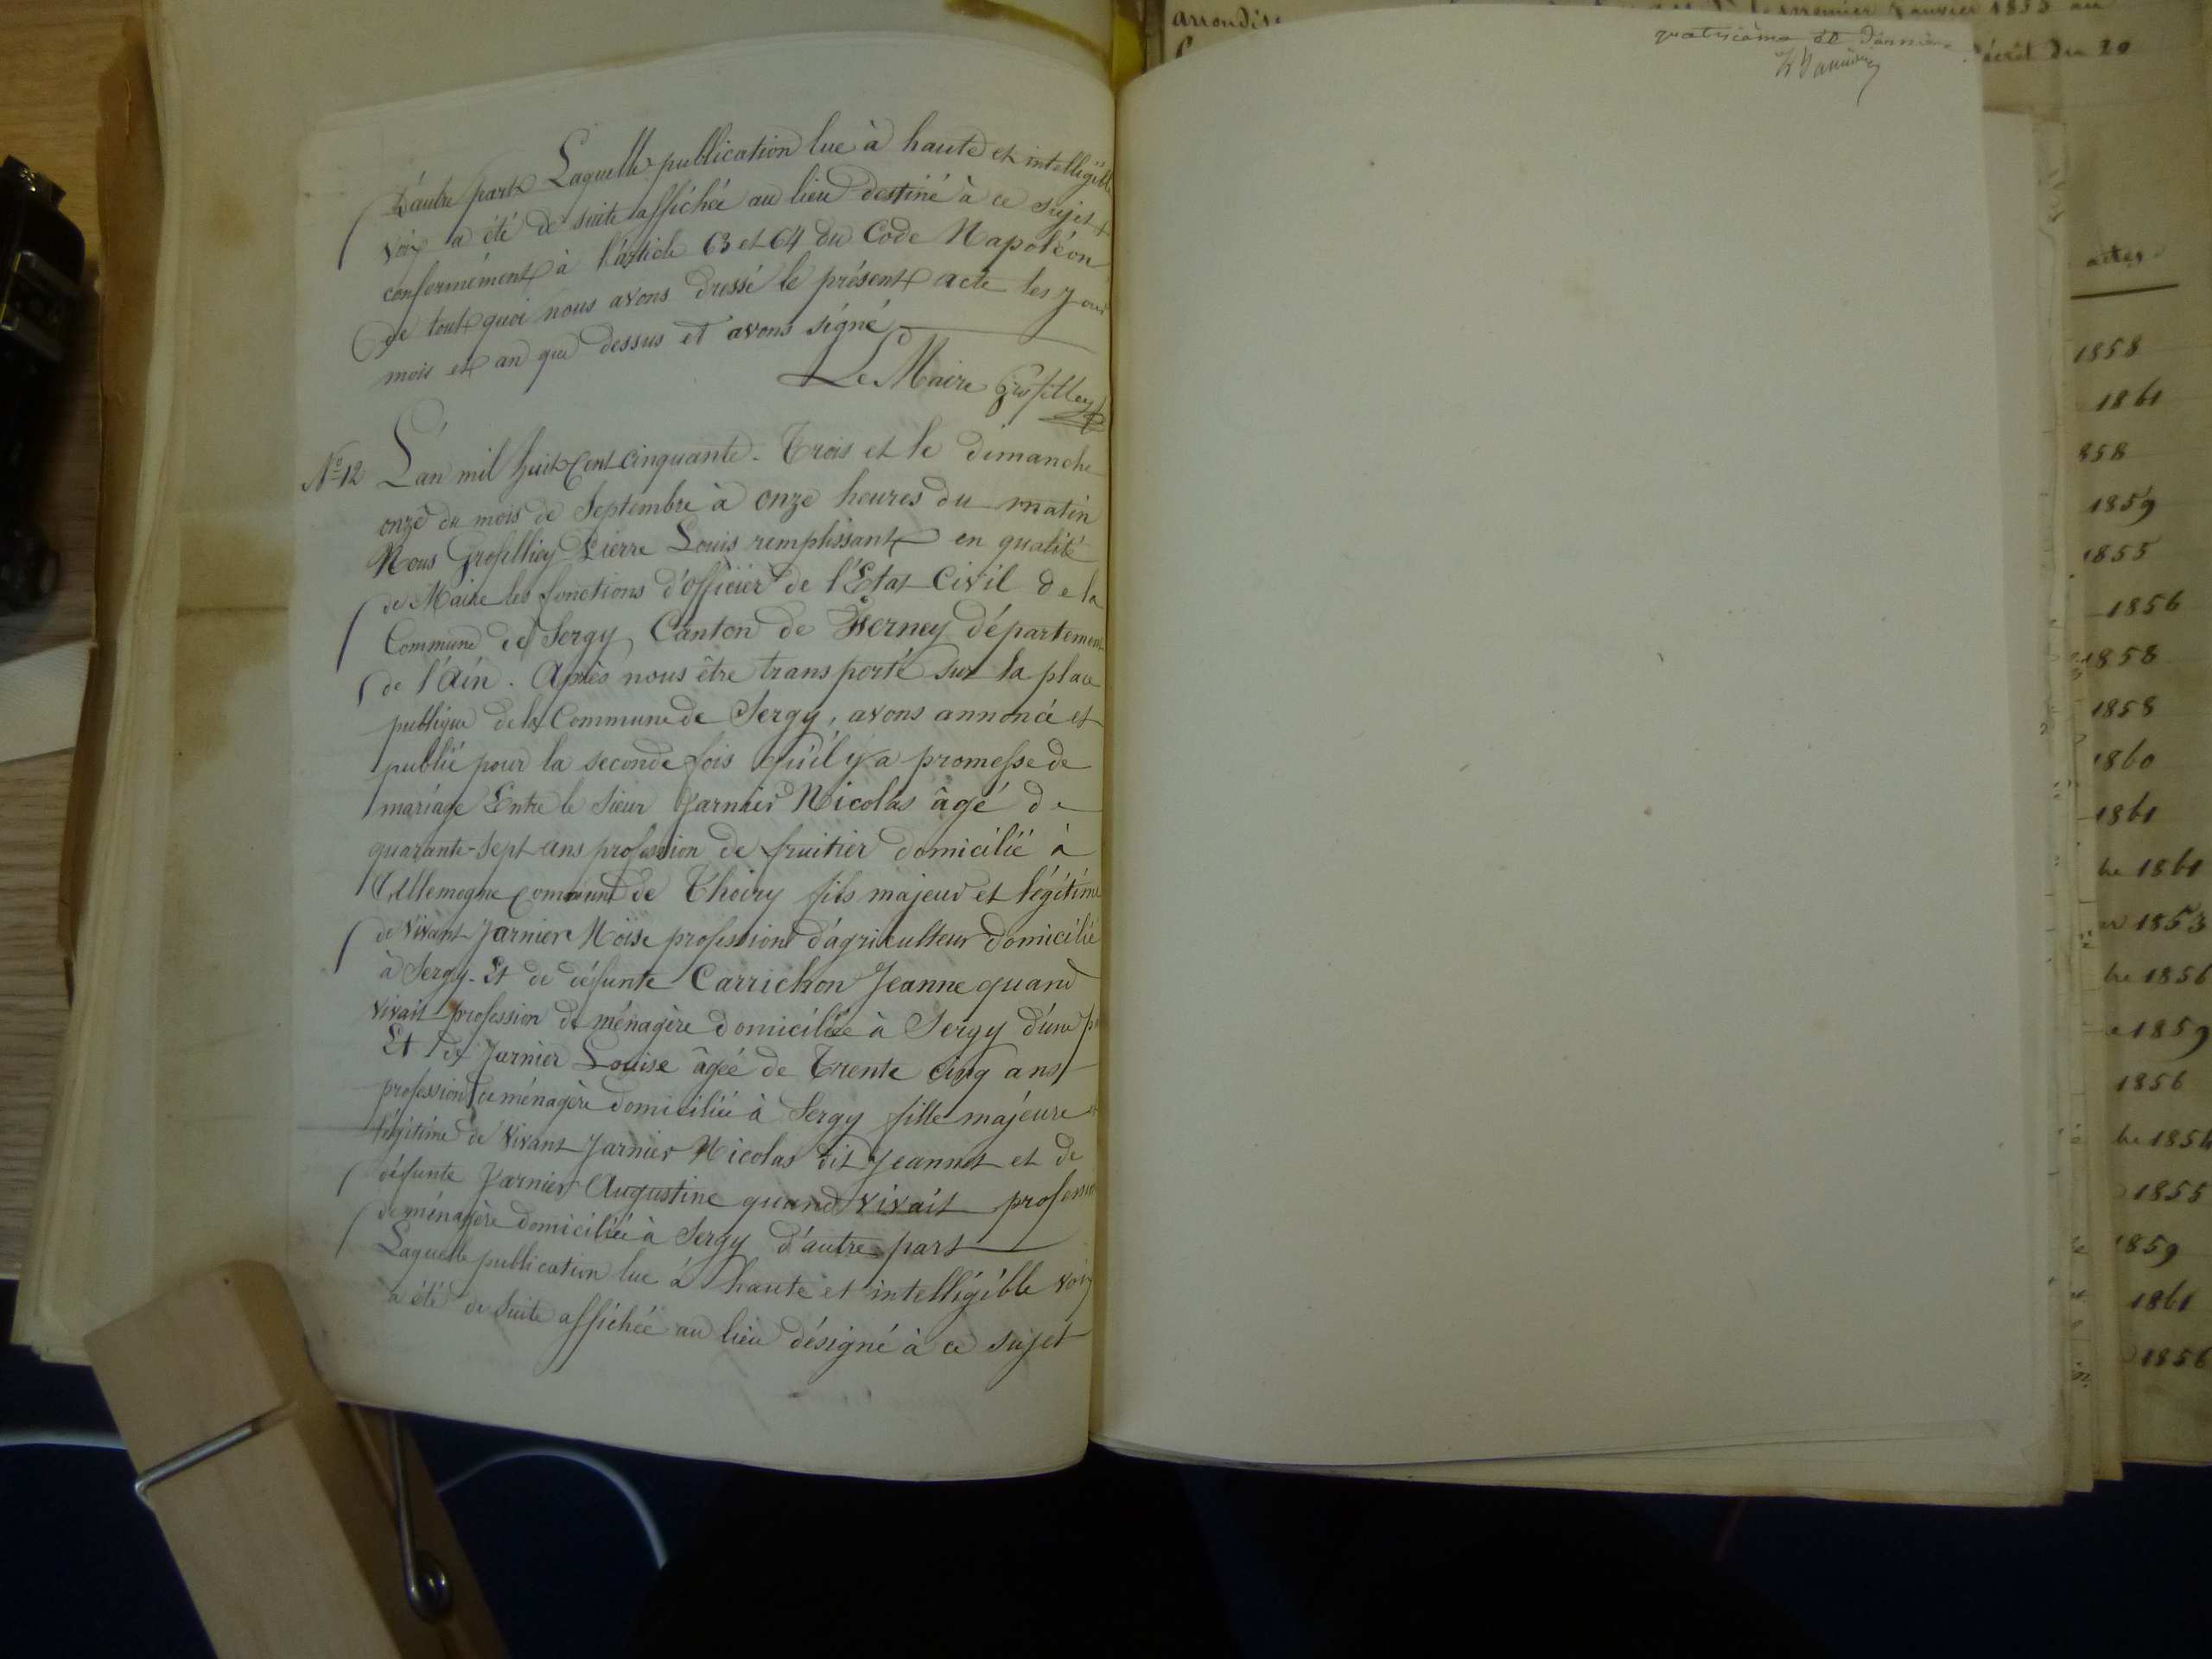 d'autre part Laquelle publication lue à haute et intelligible
voix a été de suite affichée au lieu destiné à ce sujet
conformément à l'article 63 et 64 du Code Napoléon
de tout quoi nous avons dressé le présent acte les jour
mois et an que dessus et avons signé
Le Maire Grosfilley
N° 12 L'an mil huit cent cinquante-Trois et le dimanche
onze du mois de Septembre à onze heures du matin
Nous Grosfilley Pierre Louis remplissant en qualité
de Maire les fonctions d'officier de l'Etat Civil de la
Commune de Sergy, Canton de Ferney département
de l'Ain. Après nous être transporté sur la place
publique de la Commune de Sergy, avons annoncé et
publié pour la seconde fois qu'il y a promesse de
mariage Entre le Sieur Jarnier Nicolas âgé de
quarante-sept ans profession de fruitier domicilié à
Allemogne commune de Thoiry fils majeur et légitime
de vivant Jarnier Moïse profession d'agriculteur domicilié
à Sergy. Et de défunte Carrichon Jeanne quand
vivait profession de ménagère domiciliée à Sergy d'une p
Et de Jarnier Louise âgée de Trente cinq ans
profession de ménagère domiciliée à Sergy fille majeure et
légitime de vivant Jarnier Nicolas dit Jeannet et de
défunte Jarnier Augustine quand vivait profession
de ménagère domiciliée à Sergy d'autre part
Laquelle publication lue à haute et intelligible voix
a été de suite affichée au lieu désigné à ce sujet
quatrième et dernière
arrondis
premier Janvier 1853 au
décret du 20
actes
1858
1861
858
1859
1855
1856
1858
1858
1860
1861
re 1861
1853
re 1856
1859
1856
re 1854
1855
1859
1861
1856